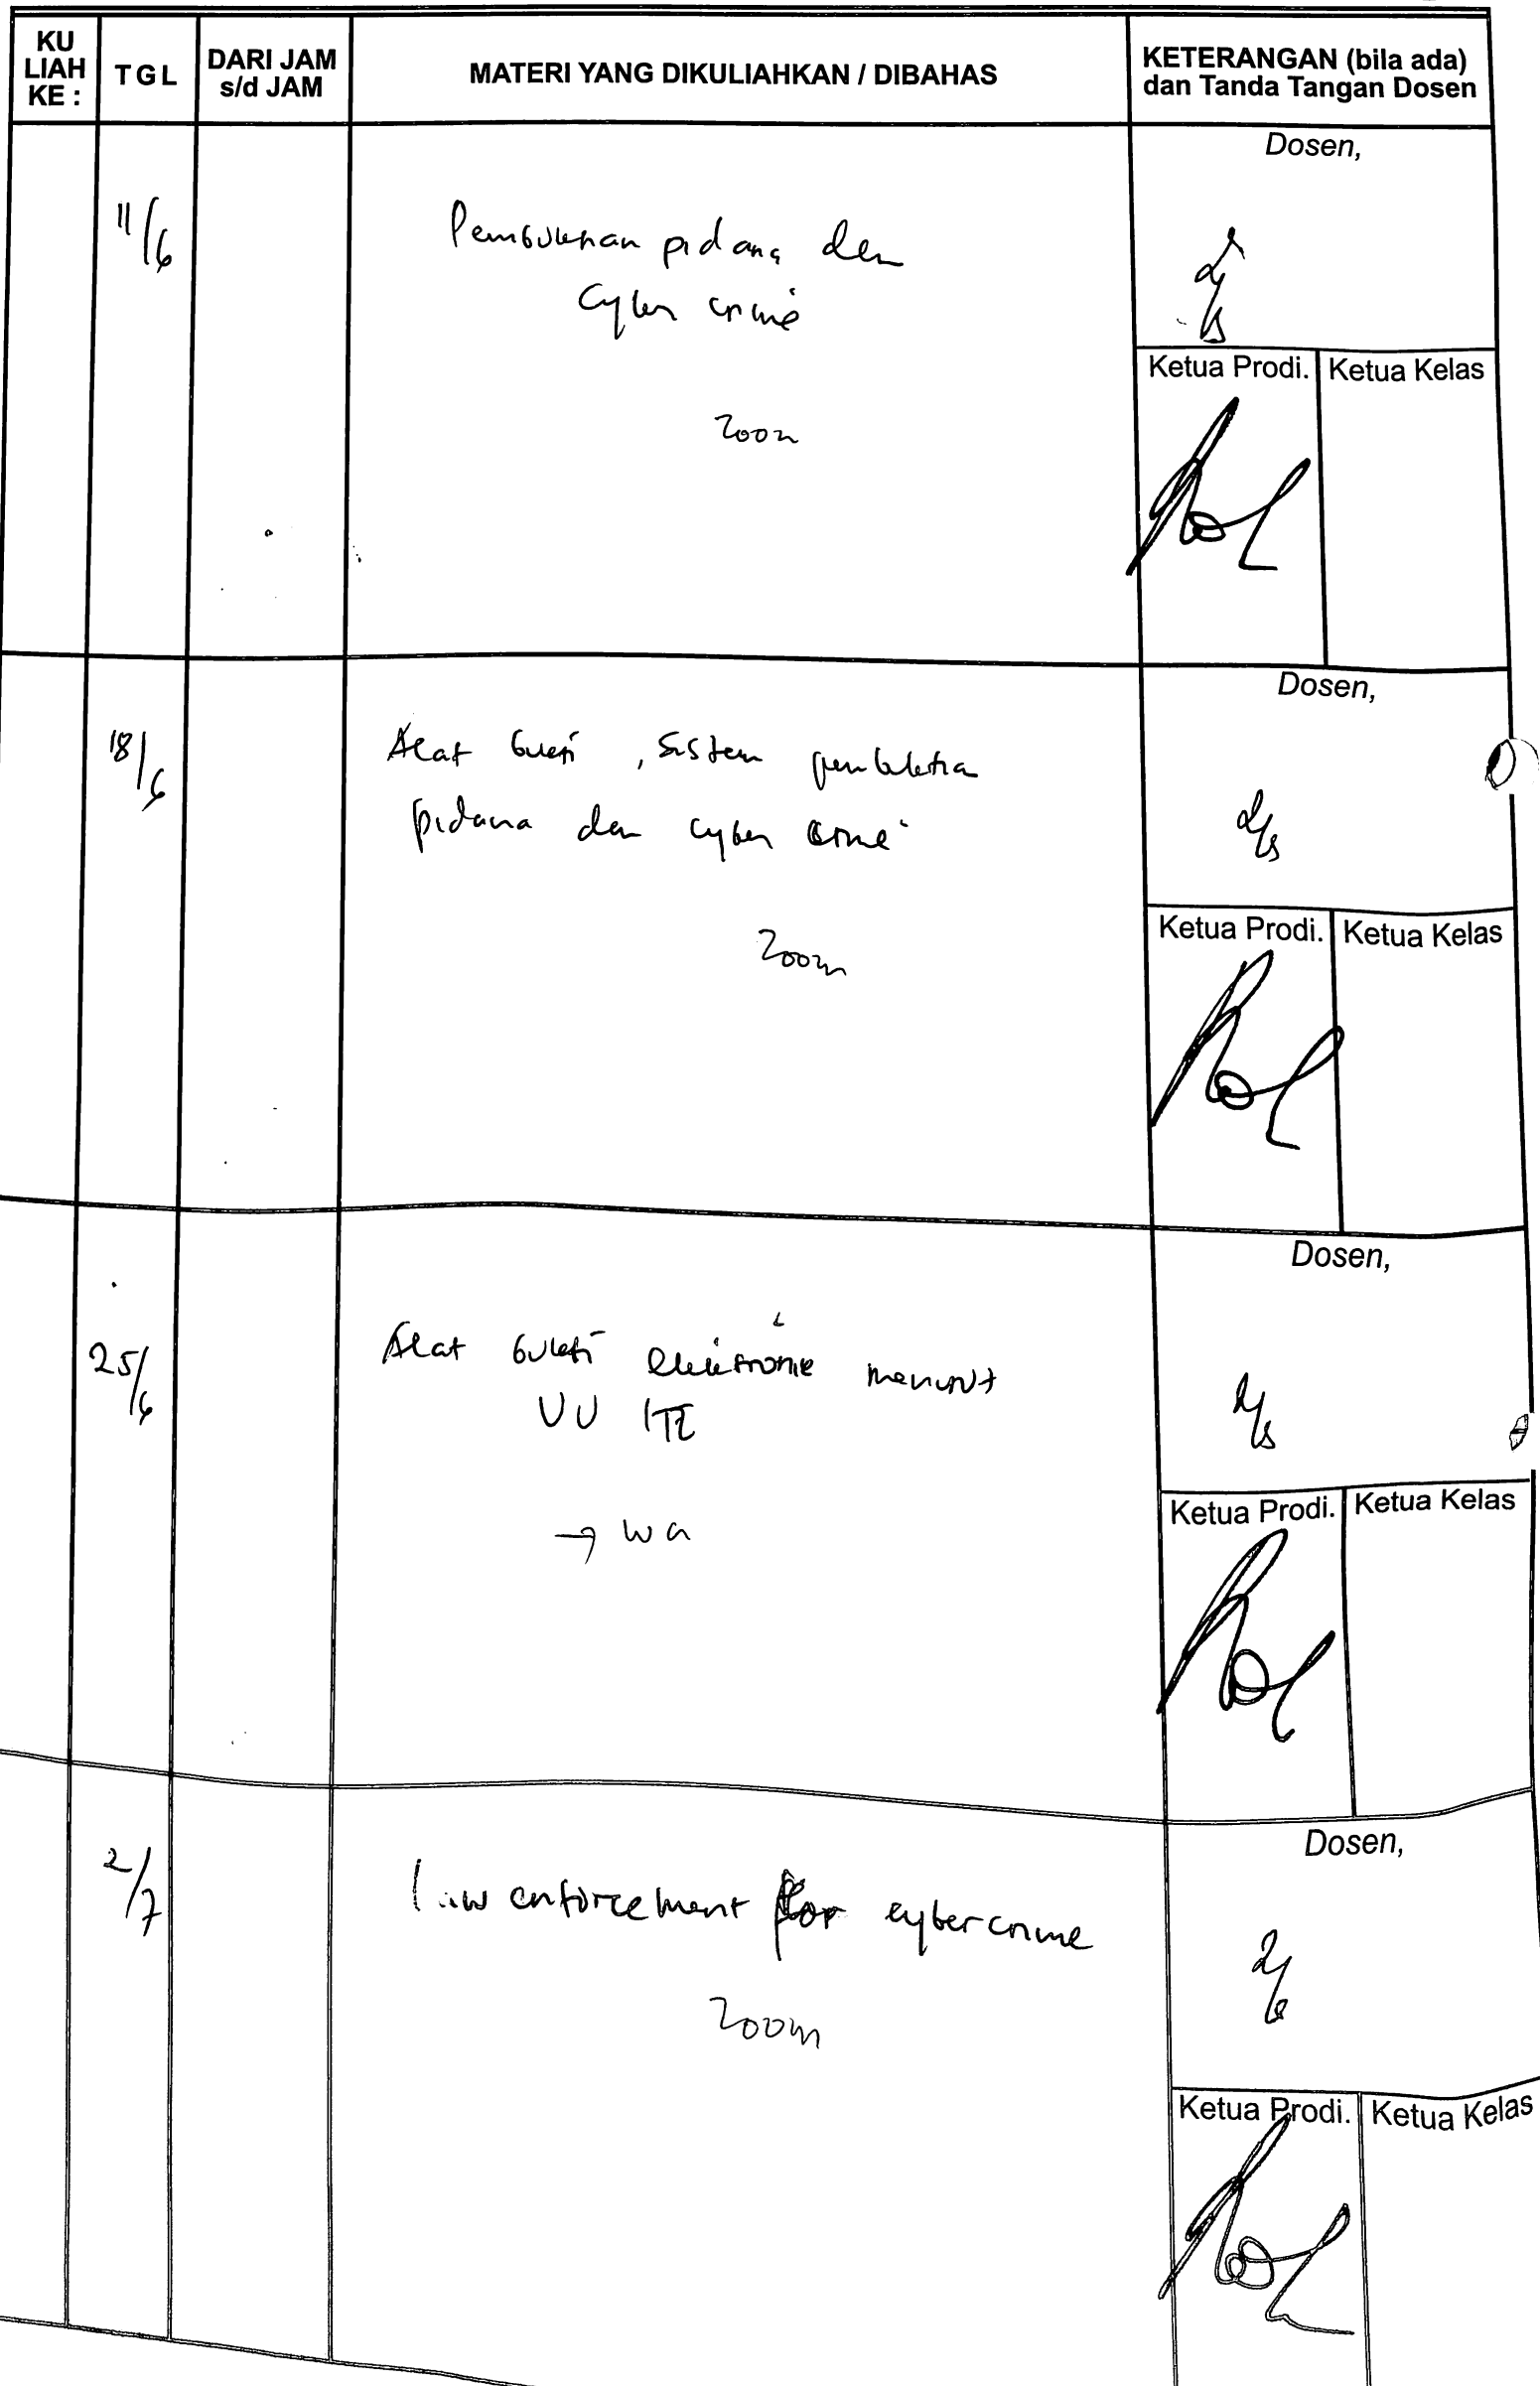 KU
LIAH
KE :
TGL
DARI JAM
s/d JAM
MATERI YANG DIKULIAHKAN / DIBAHAS
KETERANGAN (bila ada)
dan Tanda Tangan Dosen
11/6
Pembuktian pidana dan
cyber crime
Zoom
Dosen,
Ketua Prodi.
Ketua Kelas
18/6
Alat bukti, sistem pembuktian
pidana dan cyber crime
Zoom
Dosen,
Ketua Prodi.
Ketua Kelas
25/6
Alat bukti elektronik menurut
UU ITE
→ wa
Dosen,
Ketua Prodi.
Ketua Kelas
2/7
law enforcement for cybercrime
Zoom
Dosen,
Ketua Prodi.
Ketua Kelas